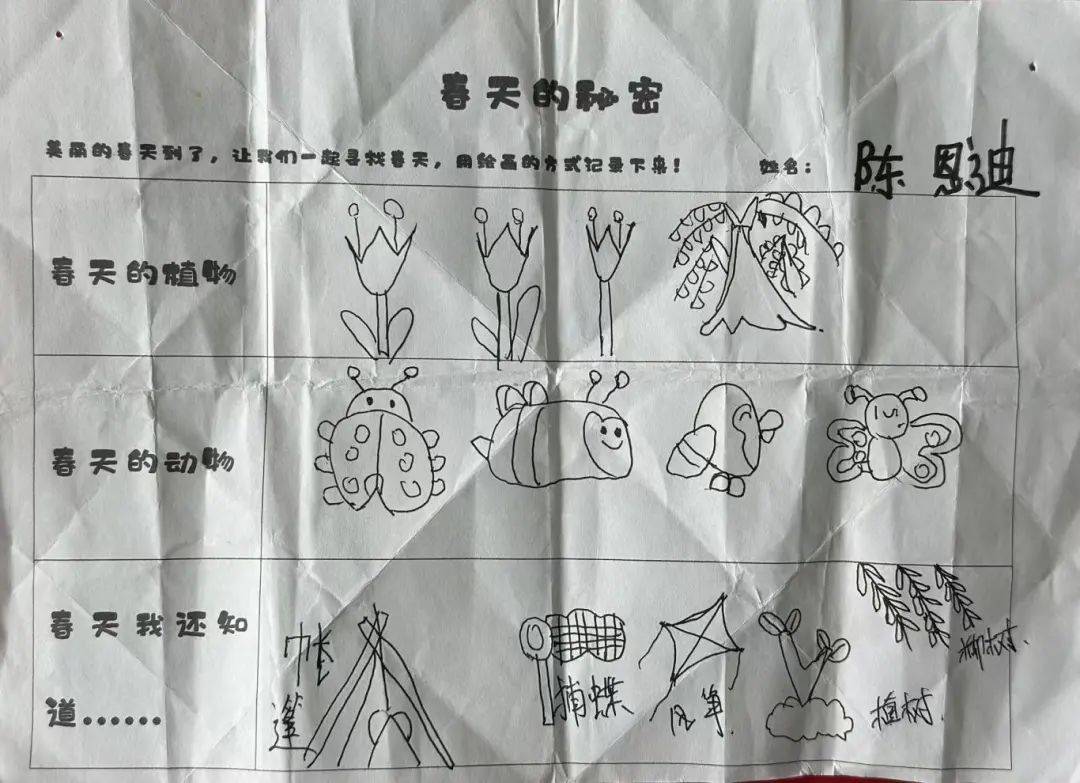 春天的秘密
美丽的春天到了，让我们一起寻找春天，用绘画的方式记录下来！ 姓名： 陈恩迪
春天的植物
春天的动物
春天我还知道......
帐篷
捕蝶
风筝
植树.
柳树.